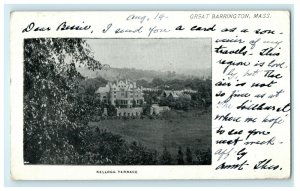 GREAT BARRINGTON, MASS.
Aug. 14.
Dear Bessie, I send you a card as a sou-
venir of my
travels. This
region is lovely
but the
air is not
so fine as at
the
when home
to see you
next week
by
Aunt
KELLOGG TERRACE